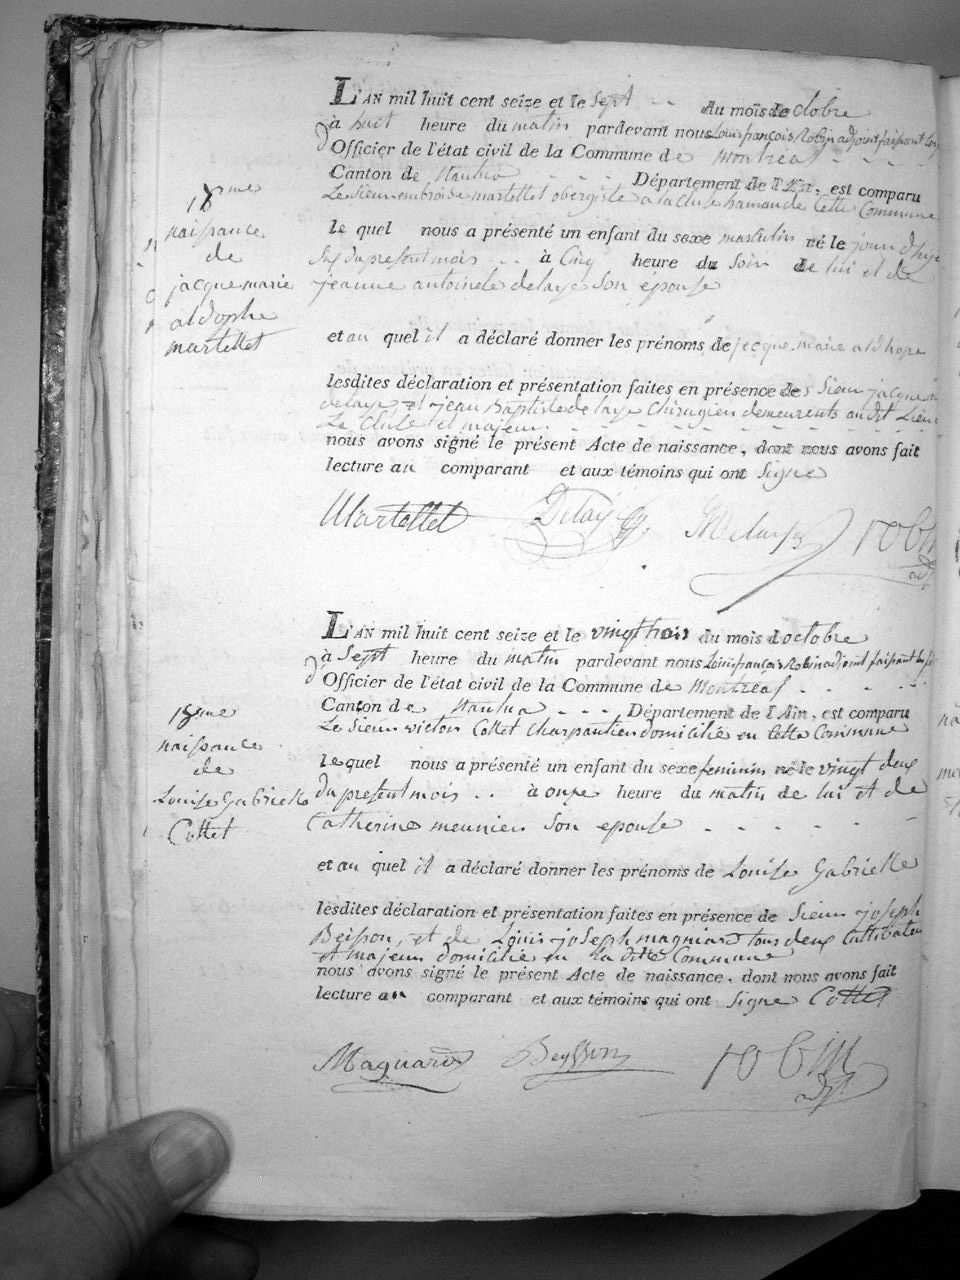 L'AN mil huit cent seize et le Sept du mois doctobre
à huit heure du matin pardevant nous Louis françois Robin adjoint faisant les
Officier de l'état civil de la Commune de Montréal
Canton de Nantua Département de l'Ain, est comparu
Le Sieur embroise martellet obergiste a la Cluse hamau de Cette Commune
le quel nous a présenté un enfant du sexe masculin né le jour dhyé
Six du present mois à Cinq heure du Soir de lui et de
jeanne antoinete delaye Son épouse
et au quel il a déclaré donner les prénoms de jacque marie aldhope
lesdites déclaration et présentation faites en présence des Sieur jacque
delaye et jean Baptiste delaye Chirugien demeurents audit Lieu
La Cluse et majeur
nous avons signé le présent Acte de naissance, dont nous avons fait
lecture au comparant et aux témoins qui ont Signe
Martellet Delay robin
adjt
18me
naissance
de
jacque marie
aldophe
martellet
L'AN mil huit cent seize et le vingt trois du mois doctobre
à Sept heure du matin pardevant nous Louis françois Robin adjoint faisant les
d'Officier de l'état civil de la Commune de Montréal
Canton de Nantua Département de l'Ain, est comparu
Le Sieur victor Collet Charpantier domicilié en Cette Commune
le quel nous a présenté un enfant du sexe feminin né le vingt deux
du present mois à onze heure du matin de lui et de
Catherine meunier Son epouse
et au quel il a déclaré donner les prénoms de Louise Gabrielle
lesdites déclaration et présentation faites en présence de Sieur joseph
Beisson, et de Louis joseph magniard tous deux Cultivateur
et majeur domicilié en la dite Commune
nous avons signé le présent Acte de naissance, dont nous avons fait
lecture au comparant et aux témoins qui ont Signe Collet
Magnard Beysson robin
adjt
naissance
de
Louise Gabrielle
Collet